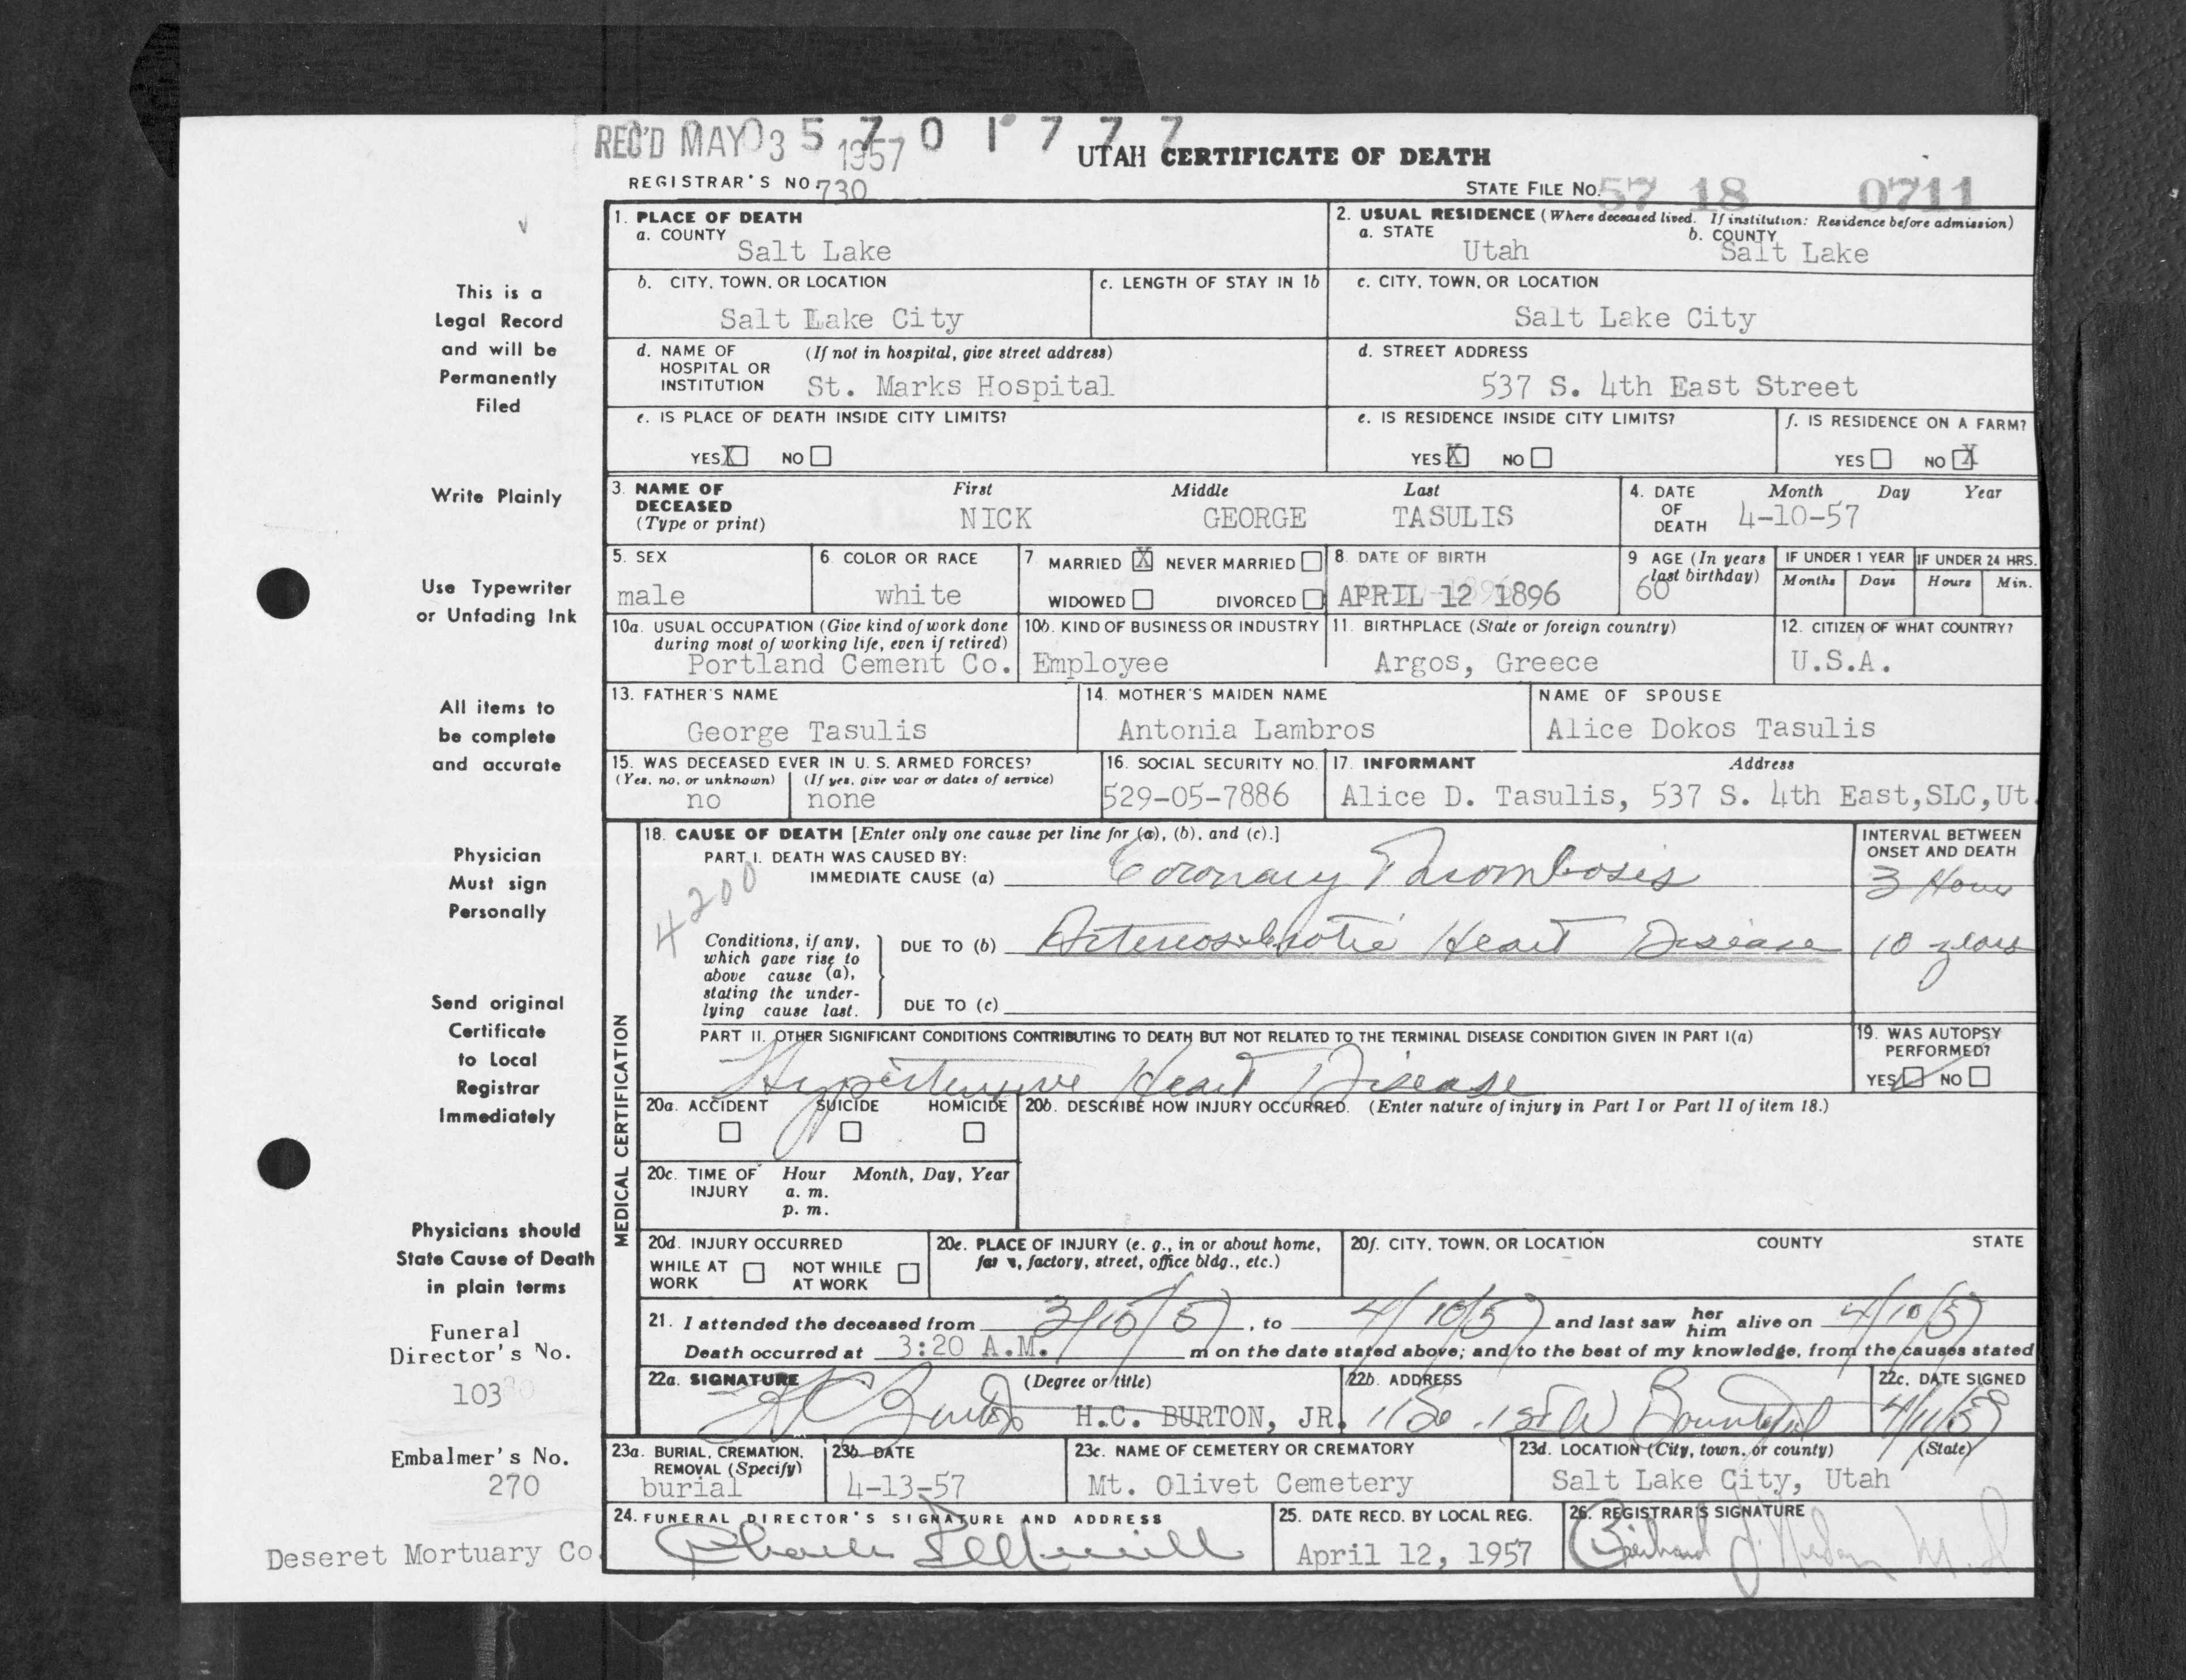 REC'D MAY 03 1957
5 7 0 1 7 7 7
UTAH CERTIFICATE OF DEATH
REGISTRAR'S NO. 730
STATE FILE NO. 57 18 0711
This is a
Legal Record
and will be
Permanently
Filed
Write Plainly
Use Typewriter
or Unfading Ink
All items to
be complete
and accurate
Physician
Must sign
Personally
Send original
Certificate
to Local
Registrar
Immediately
Physicians should
State Cause of Death
in plain terms
Funeral
Director's No.
103
Embalmer's No.
270
Deseret Mortuary Co.
1. PLACE OF DEATH
a. COUNTY
Salt Lake
2. USUAL RESIDENCE (Where deceased lived. If institution: Residence before admission)
a. STATE b. COUNTY
Utah Salt Lake
b. CITY, TOWN, OR LOCATION
Salt Lake City
c. LENGTH OF STAY IN 1b
c. CITY, TOWN, OR LOCATION
Salt Lake City
d. NAME OF (If not in hospital, give street address)
HOSPITAL OR
INSTITUTION St. Marks Hospital
d. STREET ADDRESS
537 S. 4th East Street
e. IS PLACE OF DEATH INSIDE CITY LIMITS?
YES X NO
e. IS RESIDENCE INSIDE CITY LIMITS?
YES X NO
f. IS RESIDENCE ON A FARM?
YES NO X
3. NAME OF DECEASED (Type or print)
First Middle Last
NICK GEORGE TASULIS
4. DATE OF DEATH
Month Day Year
4-10-57
5. SEX
male
6. COLOR OR RACE
white
7 MARRIED X NEVER MARRIED
WIDOWED DIVORCED
8. DATE OF BIRTH
APRIL 12 1896
9 AGE (In years
last birthday)
60
IF UNDER 1 YEAR IF UNDER 24 HRS.
Months Days Hours Min.
10a. USUAL OCCUPATION (Give kind of work done
during most of working life, even if retired)
Portland Cement Co.
10b. KIND OF BUSINESS OR INDUSTRY
Employee
11. BIRTHPLACE (State or foreign country)
Argos, Greece
12. CITIZEN OF WHAT COUNTRY?
U.S.A.
13. FATHER'S NAME
George Tasulis
14. MOTHER'S MAIDEN NAME
Antonia Lambros
NAME OF SPOUSE
Alice Dokos Tasulis
15. WAS DECEASED EVER IN U. S. ARMED FORCES?
(Yes, no, or unknown) (If yes, give war or dates of service)
no none
16. SOCIAL SECURITY NO.
529-05-7886
17. INFORMANT Address
Alice D. Tasulis, 537 S. 4th East,SLC,Ut.
MEDICAL CERTIFICATION
18. CAUSE OF DEATH [Enter only one cause per line for (a), (b), and (c).]
PART I. DEATH WAS CAUSED BY:
IMMEDIATE CAUSE (a) Coronary Thrombosis
4200
INTERVAL BETWEEN
ONSET AND DEATH
3 Hours
Conditions, if any,
which gave rise to
above cause (a),
stating the under-
lying cause last.
DUE TO (b) Arteriosclerotic Heart Disease
10 years
DUE TO (c)
PART II. OTHER SIGNIFICANT CONDITIONS CONTRIBUTING TO DEATH BUT NOT RELATED TO THE TERMINAL DISEASE CONDITION GIVEN IN PART I(a)
Hypertensive Heart Disease
19. WAS AUTOPSY
PERFORMED?
YES NO
20a. ACCIDENT SUICIDE HOMICIDE
20b. DESCRIBE HOW INJURY OCCURRED. (Enter nature of injury in Part I or Part II of item 18.)
20c. TIME OF INJURY
Hour Month, Day, Year
a. m.
p. m.
20d. INJURY OCCURRED
WHILE AT WORK NOT WHILE AT WORK
20e. PLACE OF INJURY (e. g., in or about home,
farm, factory, street, office bldg., etc.)
20f. CITY, TOWN, OR LOCATION COUNTY STATE
21. I attended the deceased from 3/10/57, to 4/10/57 and last saw her him alive on 4/10/57
Death occurred at 3:20 A.M. m on the date stated above; and to the best of my knowledge, from the causes stated
22a. SIGNATURE (Degree or title)
H C Burton Jr H.C. BURTON, JR.
22b. ADDRESS
1st W Bountiful
22c. DATE SIGNED
4/11/57
23a. BURIAL, CREMATION,
REMOVAL (Specify)
burial
23b. DATE
4-13-57
23c. NAME OF CEMETERY OR CREMATORY
Mt. Olivet Cemetery
23d. LOCATION (City, town, or county) (State)
Salt Lake City, Utah
24. FUNERAL DIRECTOR'S SIGNATURE AND ADDRESS
25. DATE RECD. BY LOCAL REG.
April 12, 1957
26. REGISTRAR'S SIGNATURE